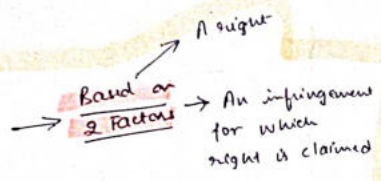 A right
Based on
2 Factors
An infringement
for which
right is claimed